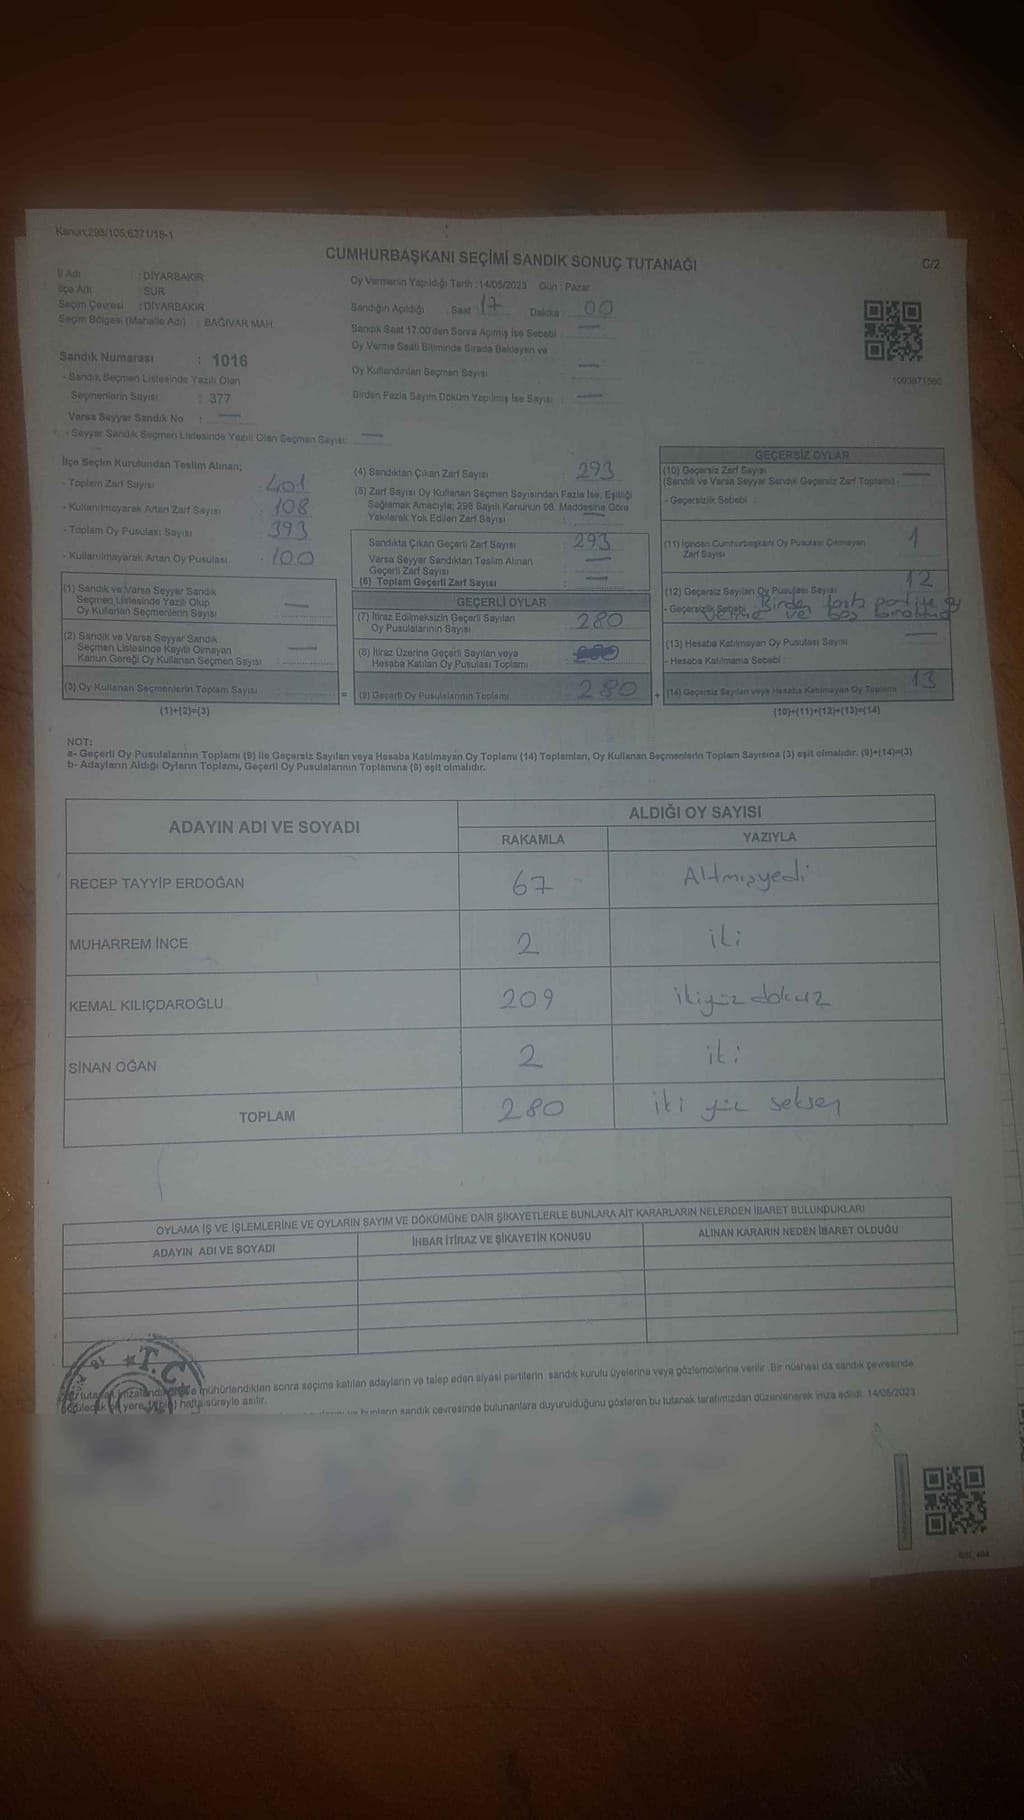 Kanun;298/105,6271/18-1
CUMHURBAŞKANI SEÇİMİ SANDIK SONUÇ TUTANAĞI
C/2
İl Adı : DİYARBAKIR
İlçe Adı : SUR
Seçim Çevresi : DİYARBAKIR
Seçim Bölgesi (Mahalle Adı) : BAĞIVAR MAH.
Oy Vermenin Yapıldığı Tarih : 14/05/2023 Gün : Pazar
Sandığın Açıldığı : Saat 17 Dakika 00
Sandık Saat 17:00'den Sonra Açılmış İse Sebebi : —
Oy Verme Saati Bitiminde Sırada Bekleyen ve
Oy Kullandırılan Seçmen Sayısı : —
Birden Fazla Sayım Döküm Yapılmış İse Sayısı : —
1093871560
Sandık Numarası : 1016
- Sandık Seçmen Listesinde Yazılı Olan
Seçmenlerin Sayısı : 377
Varsa Seyyar Sandık No : —
- Seyyar Sandık Seçmen Listesinde Yazılı Olan Seçmen Sayısı: —
İlçe Seçim Kurulundan Teslim Alınan;
- Toplam Zarf Sayısı : 401
- Kullanılmayarak Artan Zarf Sayısı : 108
- Toplam Oy Pusulası Sayısı : 393
- Kullanılmayarak Artan Oy Pusulası : 100
(1) Sandık ve Varsa Seyyar Sandık
Seçmen Listesinde Yazılı Olup
Oy Kullanan Seçmenlerin Sayısı : —
(2) Sandık ve Varsa Seyyar Sandık
Seçmen Listesinde Kayıtlı Olmayan
Kanun Gereği Oy Kullanan Seçmen Sayısı : —
(3) Oy Kullanan Seçmenlerin Toplam Sayısı
(1)+(2)=(3)
(4) Sandıktan Çıkan Zarf Sayısı : 293
(5) Zarf Sayısı Oy Kullanan Seçmen Sayısından Fazla İse, Eşitliği
Sağlamak Amacıyla; 298 Sayılı Kanunun 98. Maddesine Göre
Yakılarak Yok Edilen Zarf Sayısı : —
Sandıkta Çıkan Geçerli Zarf Sayısı : 293
Varsa Seyyar Sandıktan Teslim Alınan
Geçerli Zarf Sayısı : —
(6) Toplam Geçerli Zarf Sayısı : —
GEÇERLİ OYLAR
(7) İtiraz Edilmeksizin Geçerli Sayılan
Oy Pusulalarının Sayısı : 280
(8) İtiraz Üzerine Geçerli Sayılan veya
Hesaba Katılan Oy Pusulası Toplamı :
= (9) Geçerli Oy Pusulalarının Toplamı : 280 +
GEÇERSİZ OYLAR
(10) Geçersiz Zarf Sayısı
(Sandık ve Varsa Seyyar Sandık Geçersiz Zarf Toplamı) : —
- Geçersizlik Sebebi :
(11) İçinden Cumhurbaşkanı Oy Pusulası Çıkmayan
Zarf Sayısı 1
(12) Geçersiz Sayılan Oy Pusulası Sayısı 12
- Geçersizlik Sebebi : Birden fazla partiye oy
verme ve boş
(13) Hesaba Katılmayan Oy Pusulası Sayısı —
- Hesaba Katılmama Sebebi :
(14) Geçersiz Sayılan veya Hesaba Katılmayan Oy Toplamı 13
(10)+(11)+(12)+(13)=(14)
NOT:
a- Geçerli Oy Pusulalarının Toplamı (9) ile Geçersiz Sayılan veya Hesaba Katılmayan Oy Toplamı (14) Toplamları, Oy Kullanan Seçmenlerin Toplam Sayısına (3) eşit olmalıdır. (9)+(14)=(3)
b- Adayların Aldığı Oyların Toplamı, Geçerli Oy Pusulalarının Toplamına (9) eşit olmalıdır.
ADAYIN ADI VE SOYADI
ALDIĞI OY SAYISI
RAKAMLA YAZIYLA
RECEP TAYYİP ERDOĞAN 67 Altmışyedi
MUHARREM İNCE 2 iki
KEMAL KILIÇDAROĞLU 209 ikiyüz dokuz
SİNAN OĞAN 2 iki
TOPLAM 280 iki yüz seksen
OYLAMA İŞ VE İŞLEMLERİNE VE OYLARIN SAYIM VE DÖKÜMÜNE DAİR ŞİKAYETLERLE BUNLARA AİT KARARLARIN NELERDEN İBARET BULUNDUKLARI
ADAYIN ADI VE SOYADI İHBAR İTİRAZ VE ŞİKAYETİN KONUSU ALINAN KARARIN NEDEN İBARET OLDUĞU
T.C
mühürlendikten sonra seçime katılan adayların ve talep eden siyasi partilerin sandık kurulu üyelerine veya gözlemcilerine verilir .Bir nüshası da sandık çevresinde
hafta süreyle asılır.
ve bunların sandık çevresinde bulunanlara duyurulduğunu gösteren bu tutanak tarafımızdan düzenlenerek imza edildi. 14/05/2023